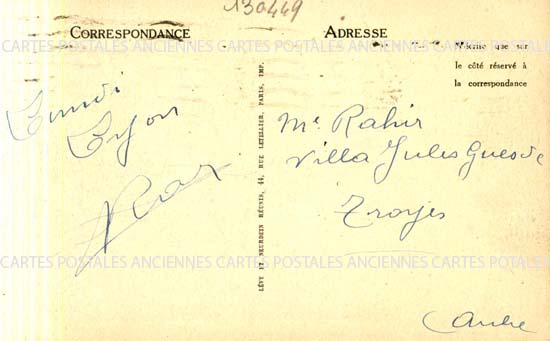 130449
CORRESPONDANCE
ADRESSE
N'écrire que sur
le côté réservé à
la correspondance
CARTES POSTALES ANCIENNES CARTES POSTALES ANCIENNES CARTES POSTALES ANCIENNES
Lyon
LÉVY ET NEURDEIN RÉUNIS, 44, RUE LETELLIER, PARIS, IMP.
Mr Rahir
Villa Jules Guesde
Troyes
CARTES POSTALES ANCIENNES CARTES POSTALES ANCIENNES CARTES POTALES ANCIENNES
(Aube